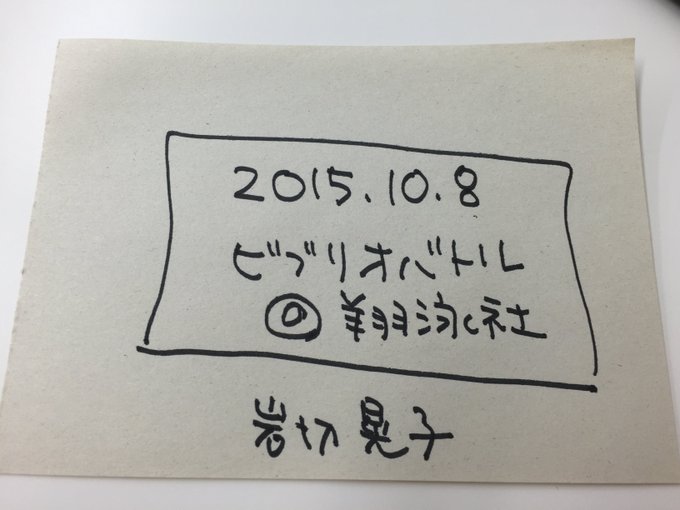 2015.10.8
ビブリオバトル
@翔泳社
岩切晃子